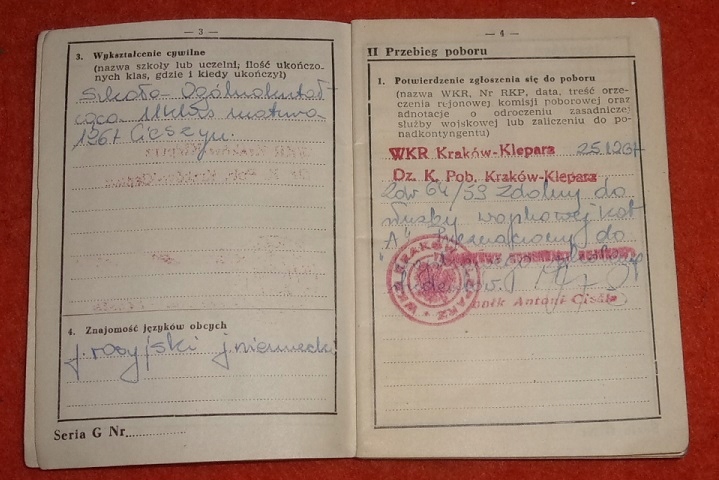 — 3 —
3. Wykształcenie cywilne
(nazwa szkoły lub uczelni, ilość ukończo-
nych klas, gdzie i kiedy ukończył)
Szkoła Ogólnokształ-
cąca 11 klas matura
1967 Cieszyn.
4. Znajomość języków obcych
j. rosyjski j. niemiecki
Seria G Nr
— 4 —
II Przebieg poboru
1. Potwierdzenie zgłoszenia się do poboru
(nazwa WKR, Nr RKP, data, treść orze-
czenia rejonowej komisji poborowej oraz
adnotacje o odroczeniu zasadniczej
służby wojskowej lub zaliczeniu do po-
nadkontyngentu)
WKR Kraków-Kleparz
Dz. K. Pob. Kraków-Kleparz
64/59 Zdolny do
służby wojskowej kat
"A" Przeznaczony do
WKR KRAKÓW KLEPARZ
Antoni